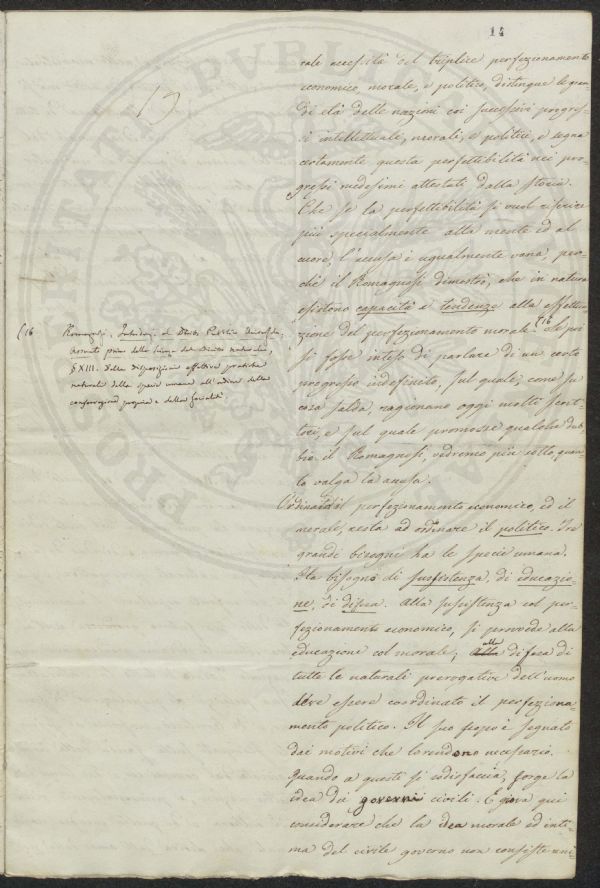 14
rale necessità del triplice perfezionamento
economico, morale, e politico, distingue le gran-
di età delle nazioni coi successivi progres-
si intellettuali, morali, e politici, e segna
certamente questa perfettibilità nei pro-
gressi medesimi attestati dalla storia.
Che se la perfettibilità si vuol riferire
più specialmente alla mente ed al
cuore, l'accusa è ugualmente vana, poi-
chè il Romagnosi dimostrò, che in natura
esistono capacità e tendenze alla effettua-
zione del perfezionamento morale (16. Se poi
si fosse inteso di parlare di un certo
progresso indefinito, sul quale, come su
cosa salda, ragionano oggi molti scrit-
tori, e sul quale promosse qualche dub-
bio il Romagnosi, vedremo più sotto, quan-
to valga la accusa.
(16 Romagnosi, Introduz. al Diritto Pubblico Universale,
Assunto primo della scienza del diritto naturale,
§ XIII. Della disposizione affettiva pratiche
naturali della specie umana all'ordine della
conservazione propria e della socialità.
Ordinato il perfezionamento economico, ed il
morale, resta ad ordinare il politico. Tre
grandi bisogni ha la specie umana.
Ha bisogno di sussistenza, di educazio-
ne, di difesa. Alla sussistenza col per-
fezionamento economico, si provvede alla
educazione col morale; alla difesa di
tutte le naturali prerogative dell'uomo
deve essere coordinato il perfeziona-
mento politico. Il suo scopo è segnato
dai motivi che lo rendono necessario.
Quando a questi si soddisfaccia, sorge la
idea dei governi civili. E giova qui
considerare che la idea morale ed inti-
ma del civile governo non consiste uni-